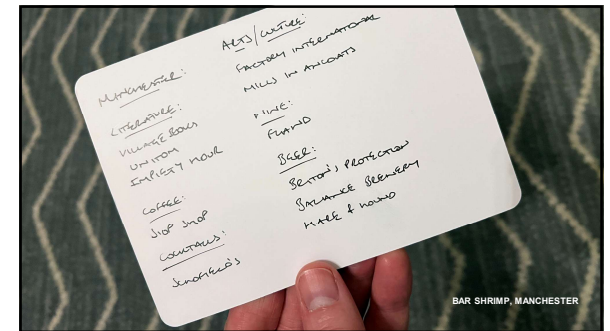 MANCHESTER:
LITERATURE:
VILLAGE BOOKS
UNITOM
IMPIETY HOUR
COFFEE:
SIOP SHOP
COCKTAILS:
SCHOFIELD'S
ARTS/CULTURE:
FACTORY INTERNATIONAL
MILLS IN ANCOATS
WINE:
FLAWD
BEER:
BRITON'S PROTECTION
BALANCE BREWERY
HARE & HOUND
BAR SHRIMP, MANCHESTER